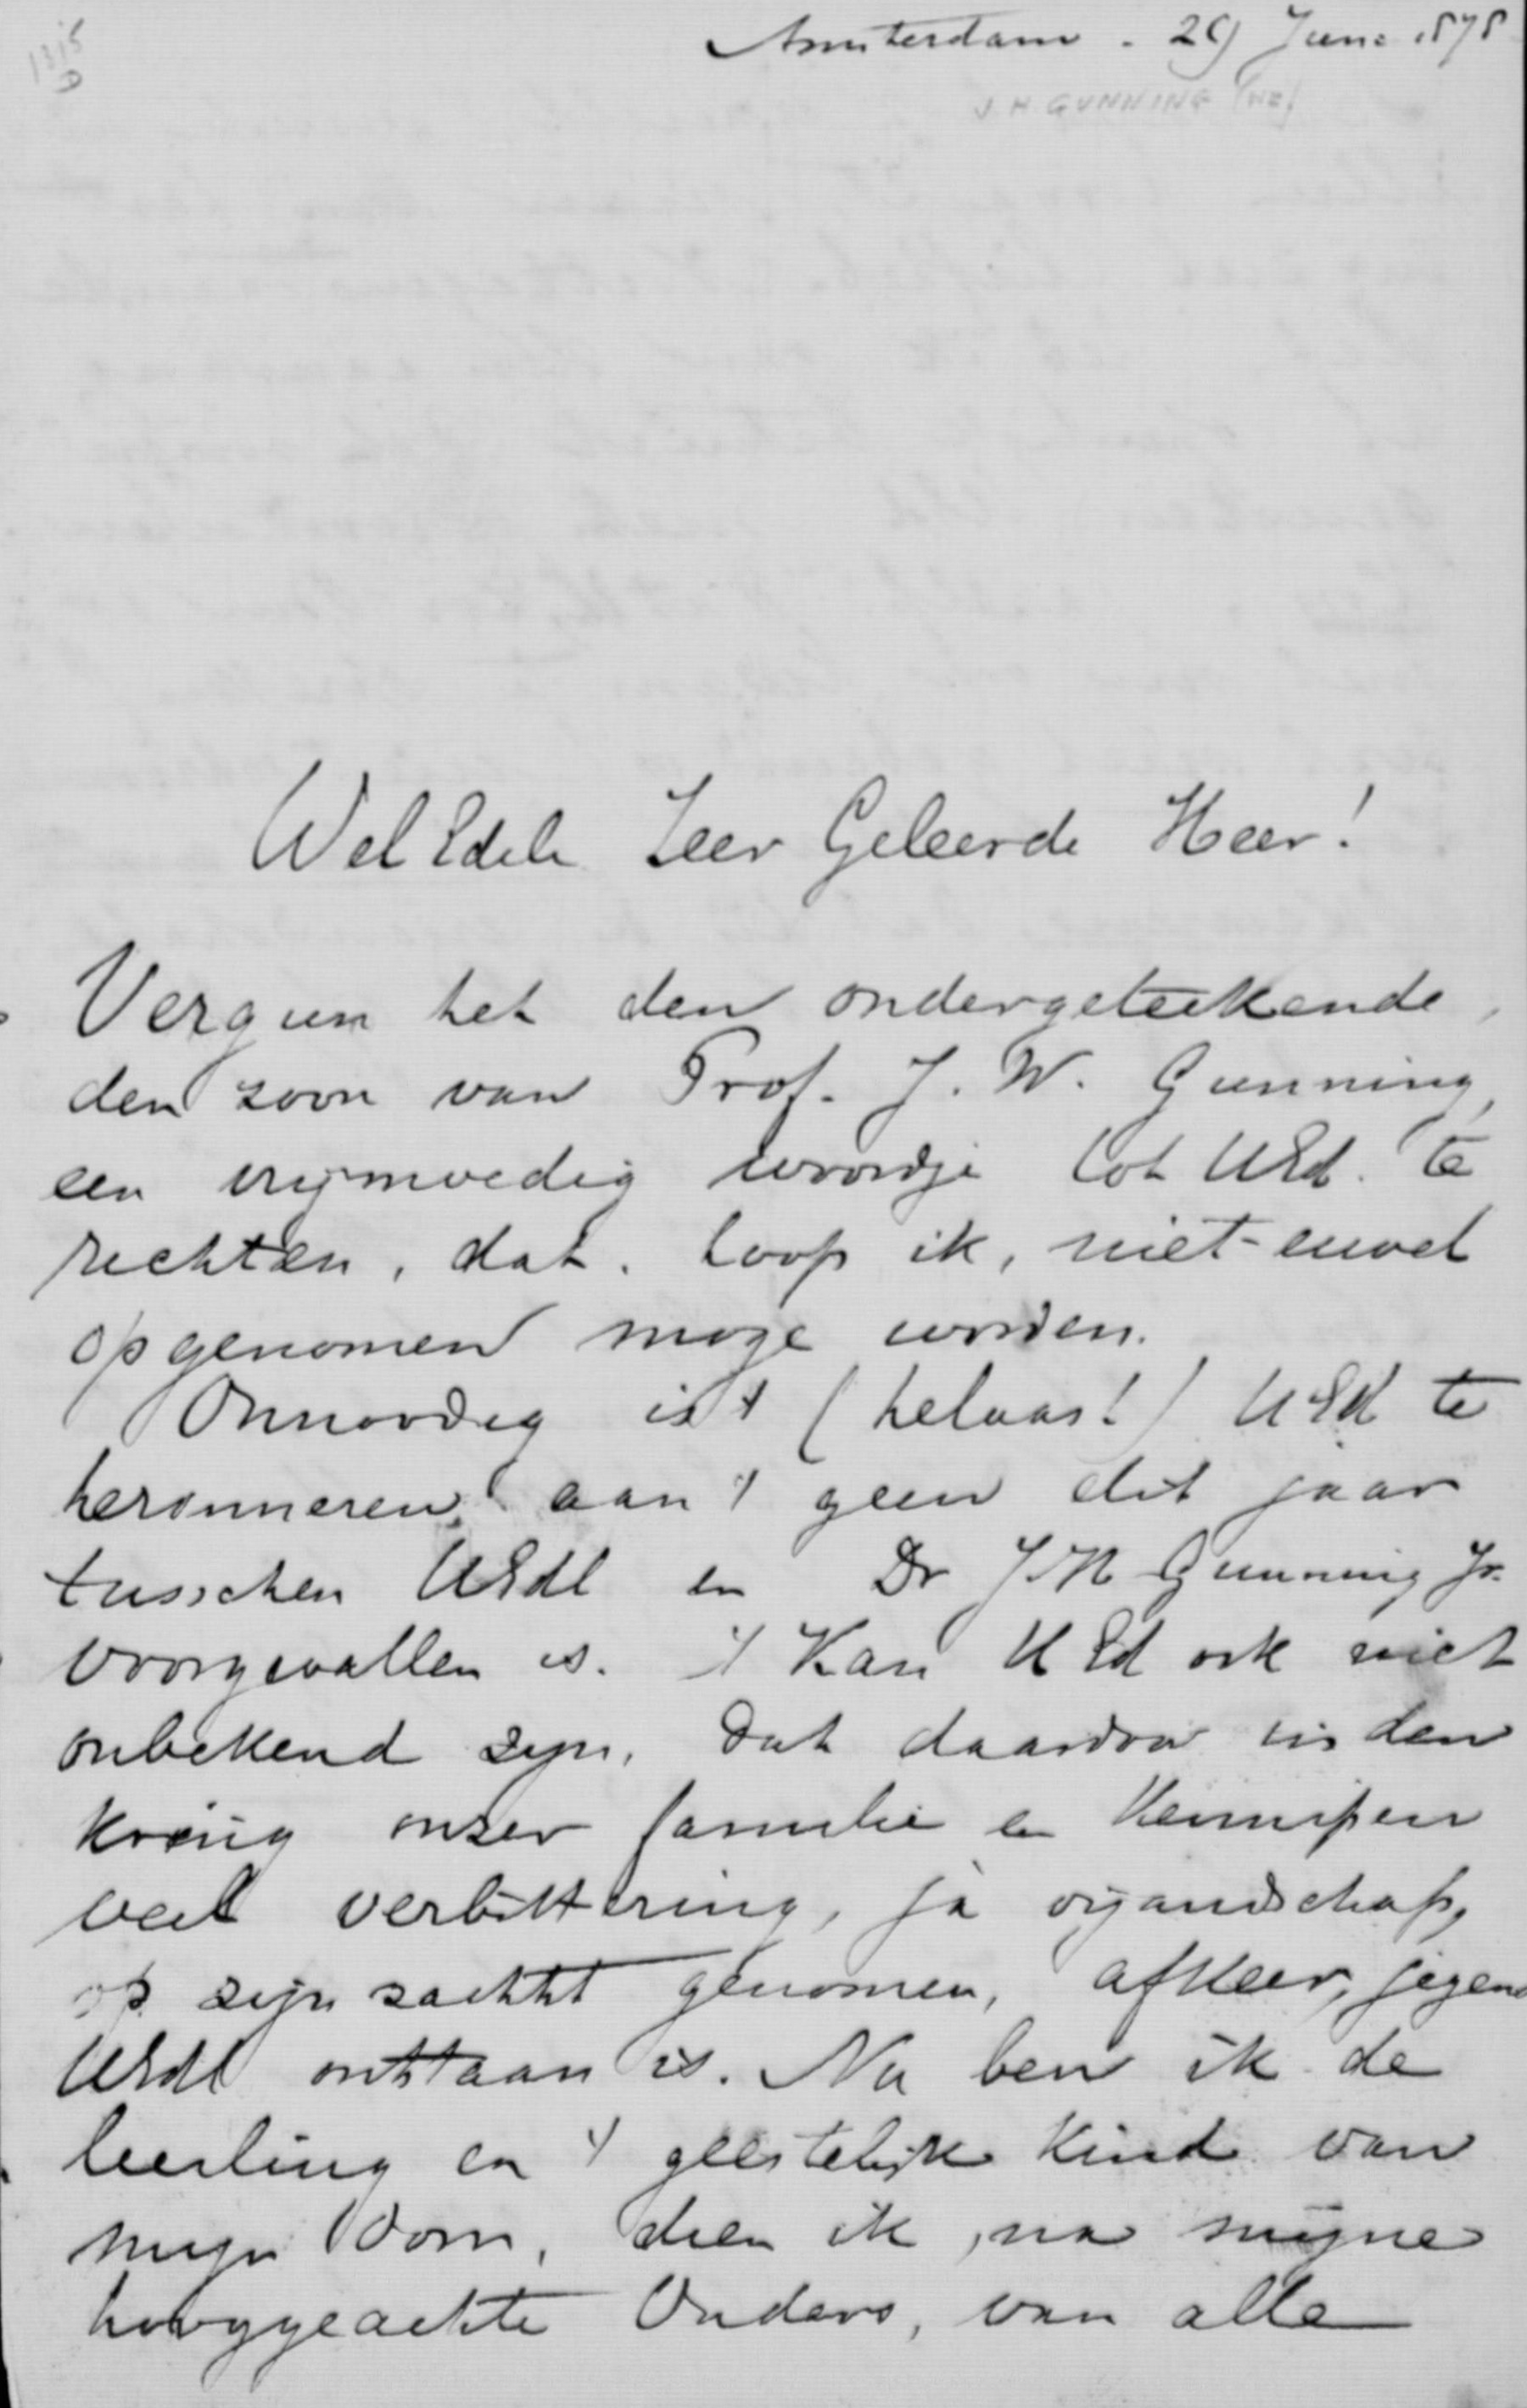 Amsterdam - 29 Juni 1878
J H GUNNING
Wel Edele Zeer Geleerde Heer!
Vergun het den ondergeteekende,
den zoon van Prof. J. W. Gunning,
een vrijmoedig woordje tot UEd. te
richten, dat, hoop ik, niet euvel
opgenomen moge worden.
Onnoodig is 't (helaas!) UEd te
herinneren aan 't geen dit jaar
tusschen UEdl en Dr J H Gunning Jr.
voorgevallen is. 't Kan UEd ook niet
onbekend zijn, dat daardoor in den
kring onzer familie en kennissen
veel verbittering, ja vijandschap,
op zijn zachtst genomen, afkeer, jegens
UEdl ontstaan is. Nu ben ik de
leerling en 't geestelijk kind van
mijn Oom, dien ik, na mijne
hooggeachte Ouders, van alle